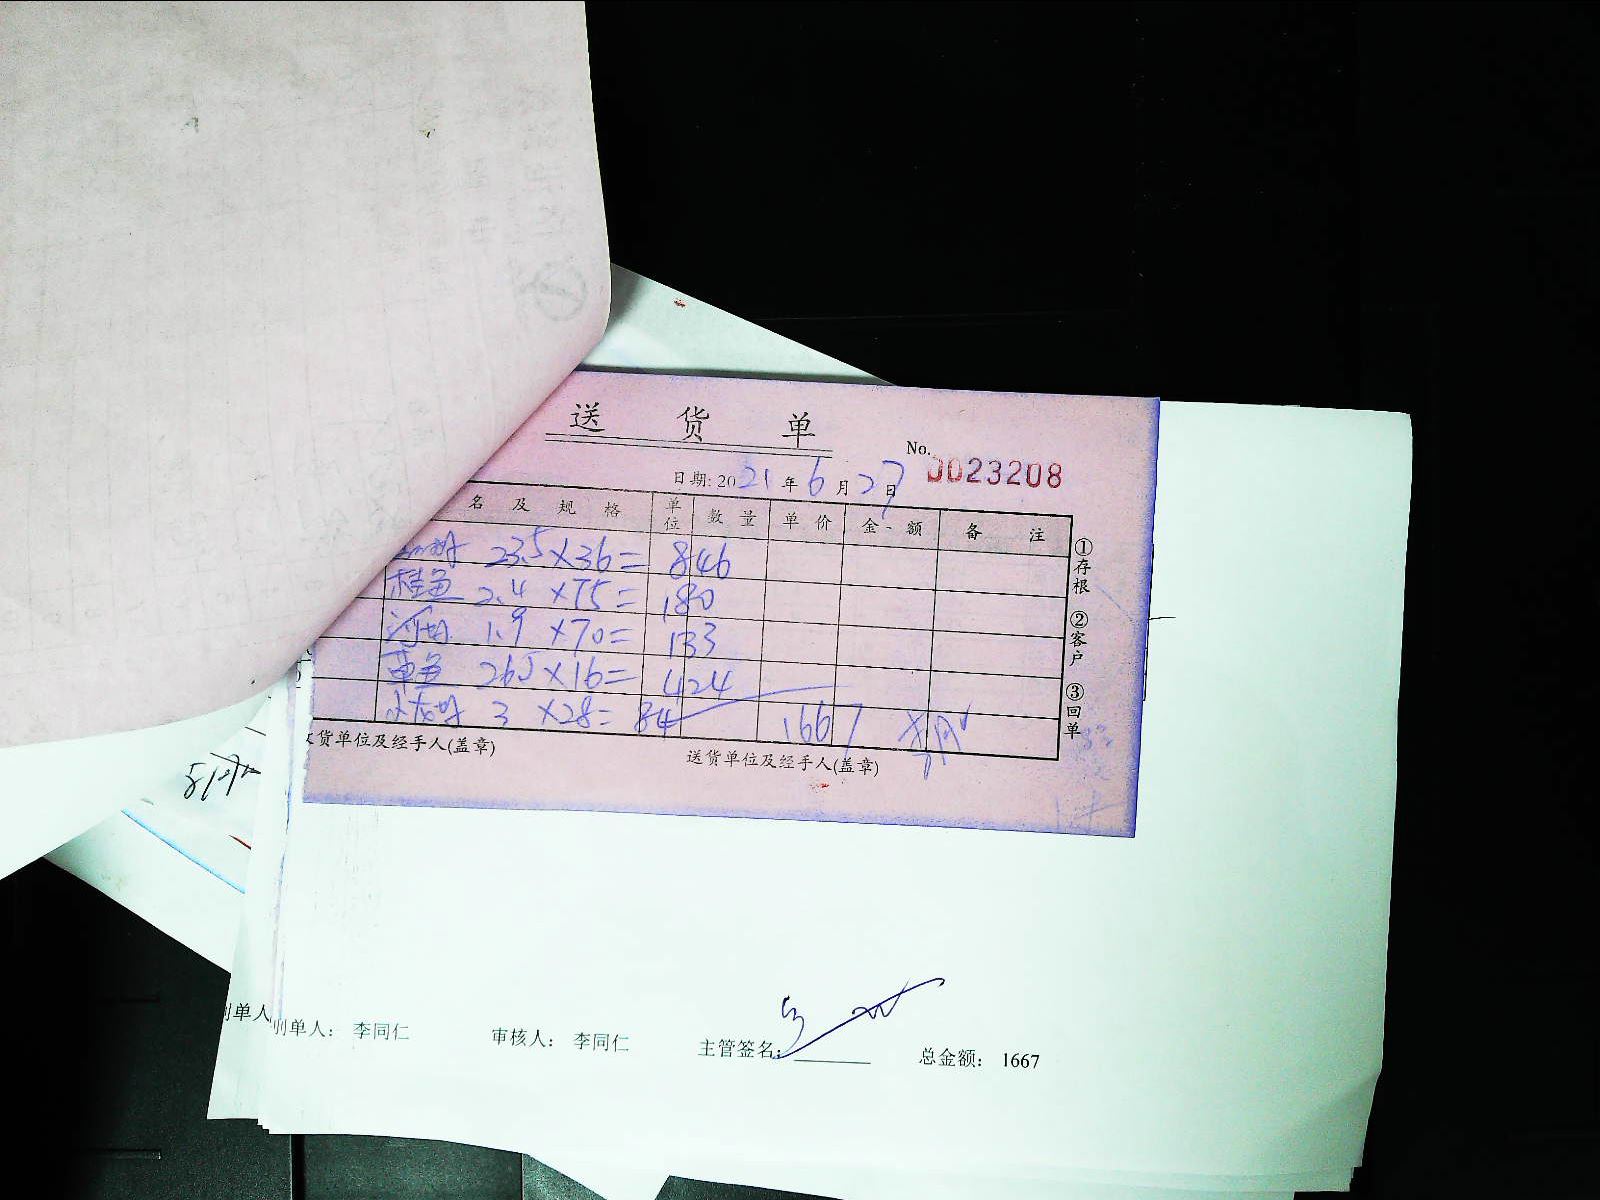 送货单
No. 0023208
日期: 2021年6月27日
名及规格 单位 数量 单价 金额 备注
23.5×36= 846
桂鱼 2.4×75= 180
河虾 1.9×70= 133
草鱼 26.5×16= 424
3×28= 84
1667
货单位及经手人(盖章) 送货单位及经手人(盖章)
①存根 ②客户 ③回单
单人
制单人: 李同仁 审核人: 李同仁 主管签名: 总金额: 1667